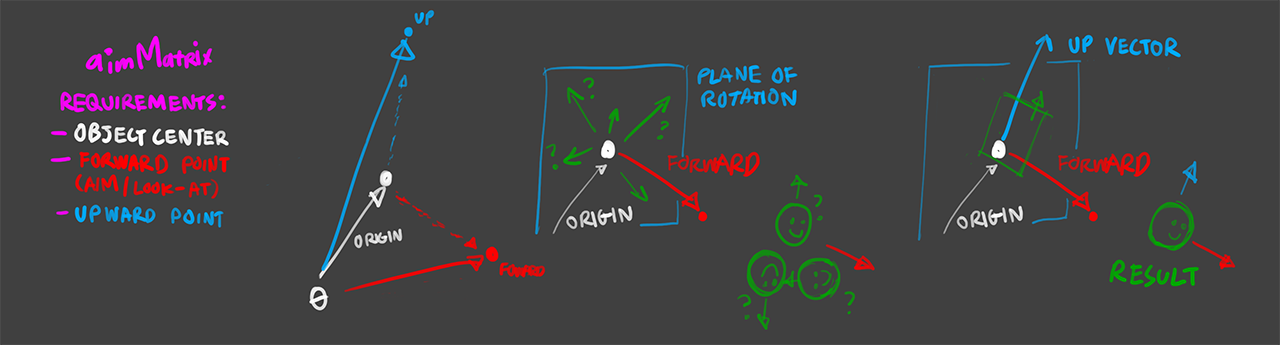 aimMatrix
REQUIREMENTS:
- OBJECT CENTER
- FORWARD POINT
(AIM/LOOK-AT)
- UPWARD POINT
UP
ORIGIN
FOWARD
0
PLANE OF
ROTATION
?
?
?
FORWARD
ORIGIN
?
?
?
UP VECTOR
FORWARD
ORIGIN
RESULT